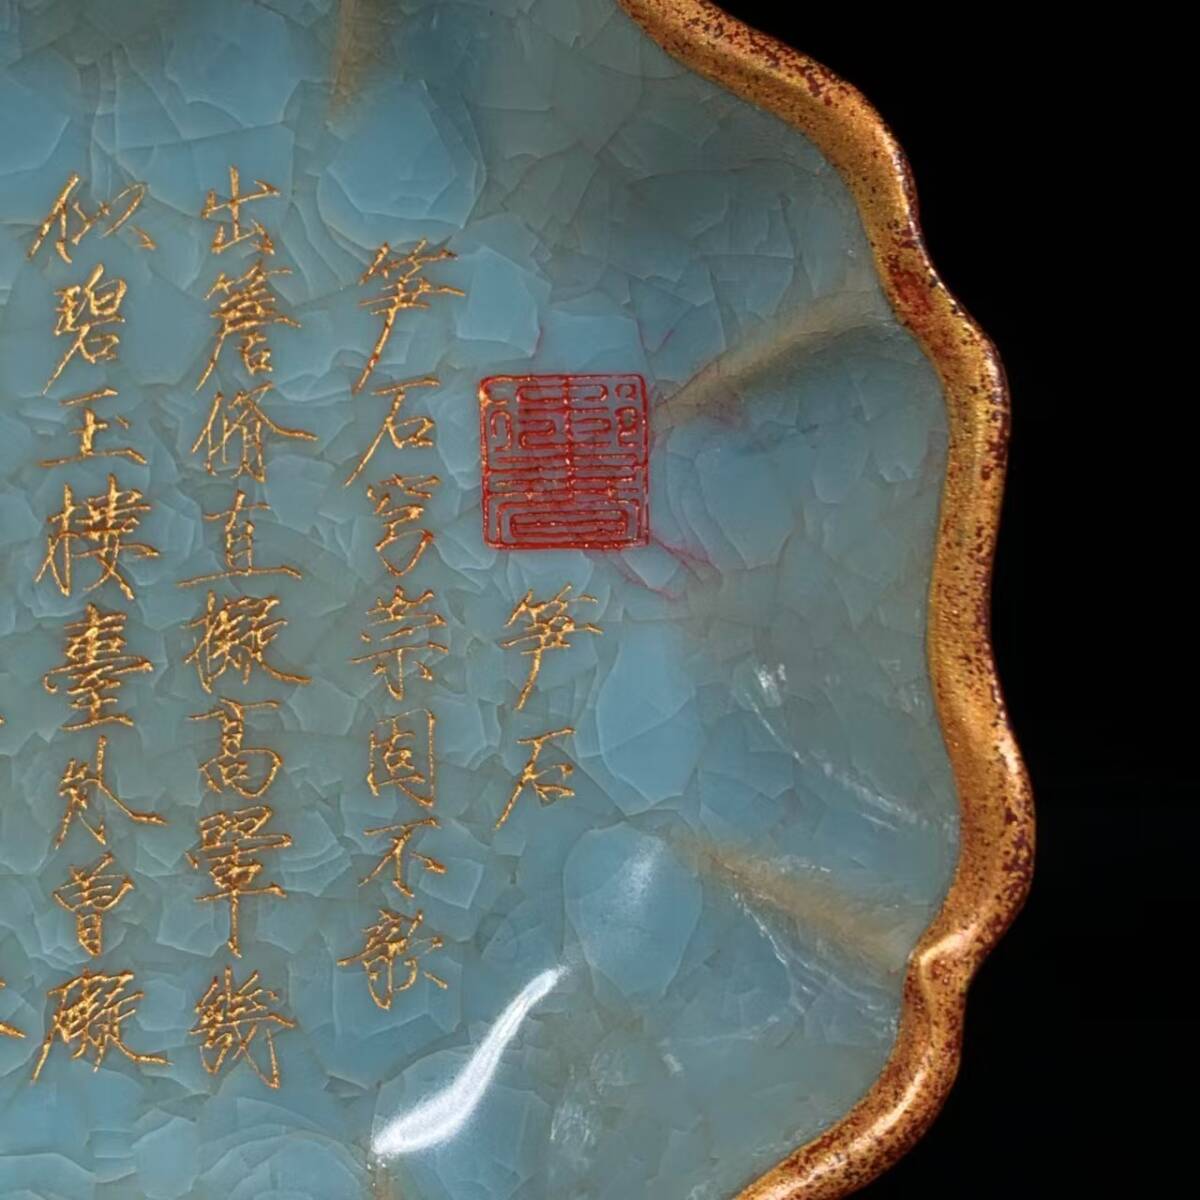 笋石
笋石穹崇固不欹
出簷脩直擬高翬幾
似碧玉樓臺外曾礙